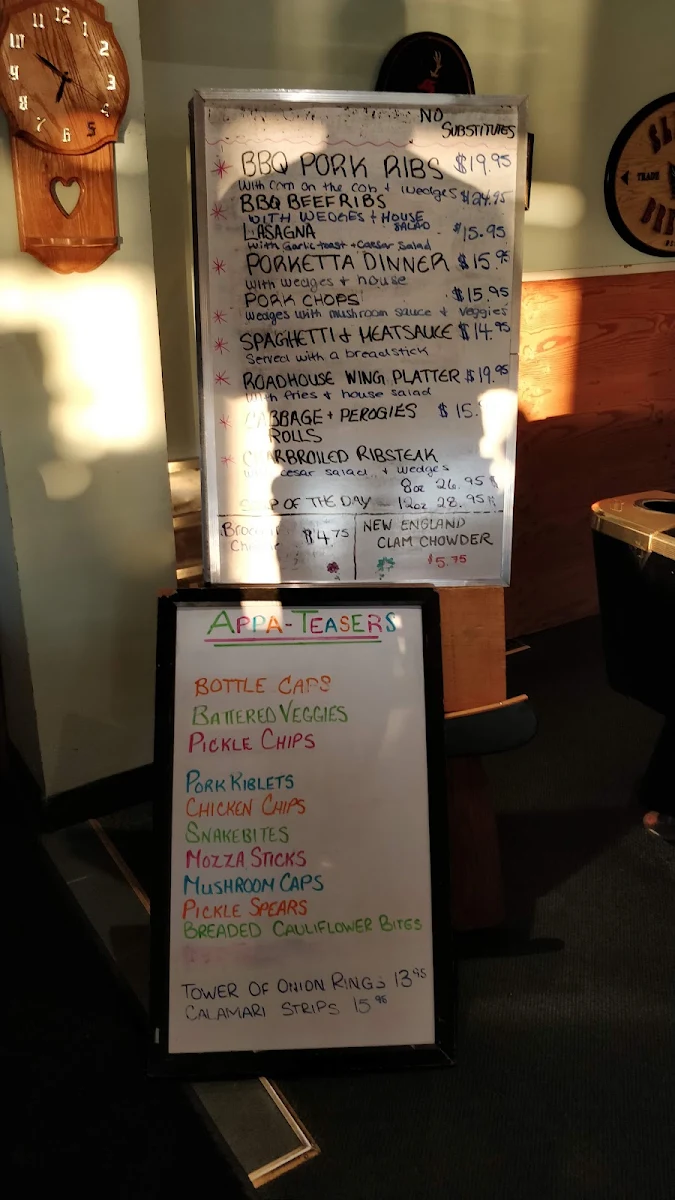 12
1
2
3
5
6
7
8
9
NO
SUBSTITUTES
* BBQ PORK RIBS $19.95
With corn on the cob + wedges
* BBQ BEEF RIBS $24.95
WITH WEDGES + HOUSE SALAD
LASAGNA $15.95
with Garlic toast + Caesar Salad
* PORKETTA DINNER $15.95
with wedges + house
PORK CHOPS $15.95
* Wedges with mushroom sauce + Veggies
* SPAGHETTI & MEATSAUCE $14.95
Served with a breadstick
* ROADHOUSE WING PLATTER $19.95
With fries & house salad
* CABBAGE + PEROGIES $15.
ROLLS
* CHARBROILED RIBSTEAK
with cesar salad + wedges
8oz 26.95
SOUP OF THE DAY 12oz 28.95
$4.75
NEW ENGLAND
CLAM CHOWDER
$5.75
TRADE
APPA-TEASERS
BOTTLE CAPS
BATTERED VEGGIES
PICKLE CHIPS
PORK RIBLETS
CHICKEN CHIPS
SNAKEBITES
MOZZA STICKS
MUSHROOM CAPS
PICKLE SPEARS
BREADED CAULIFLOWER BITES
TOWER OF ONION RINGS 13.95
CALAMARI STRIPS 15.95